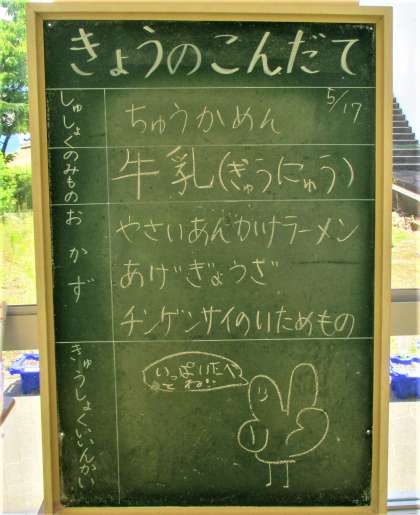 きょうのこんだて
5/17
しゅしょく
ちゅうかめん
のみもの
牛乳(ぎゅうにゅう)
おかず
やさいあんかけラーメン
あげぎょうざ
チンゲンサイのいためもの
きゅうしょくいいんかい
いっぱい食べ
てね!!